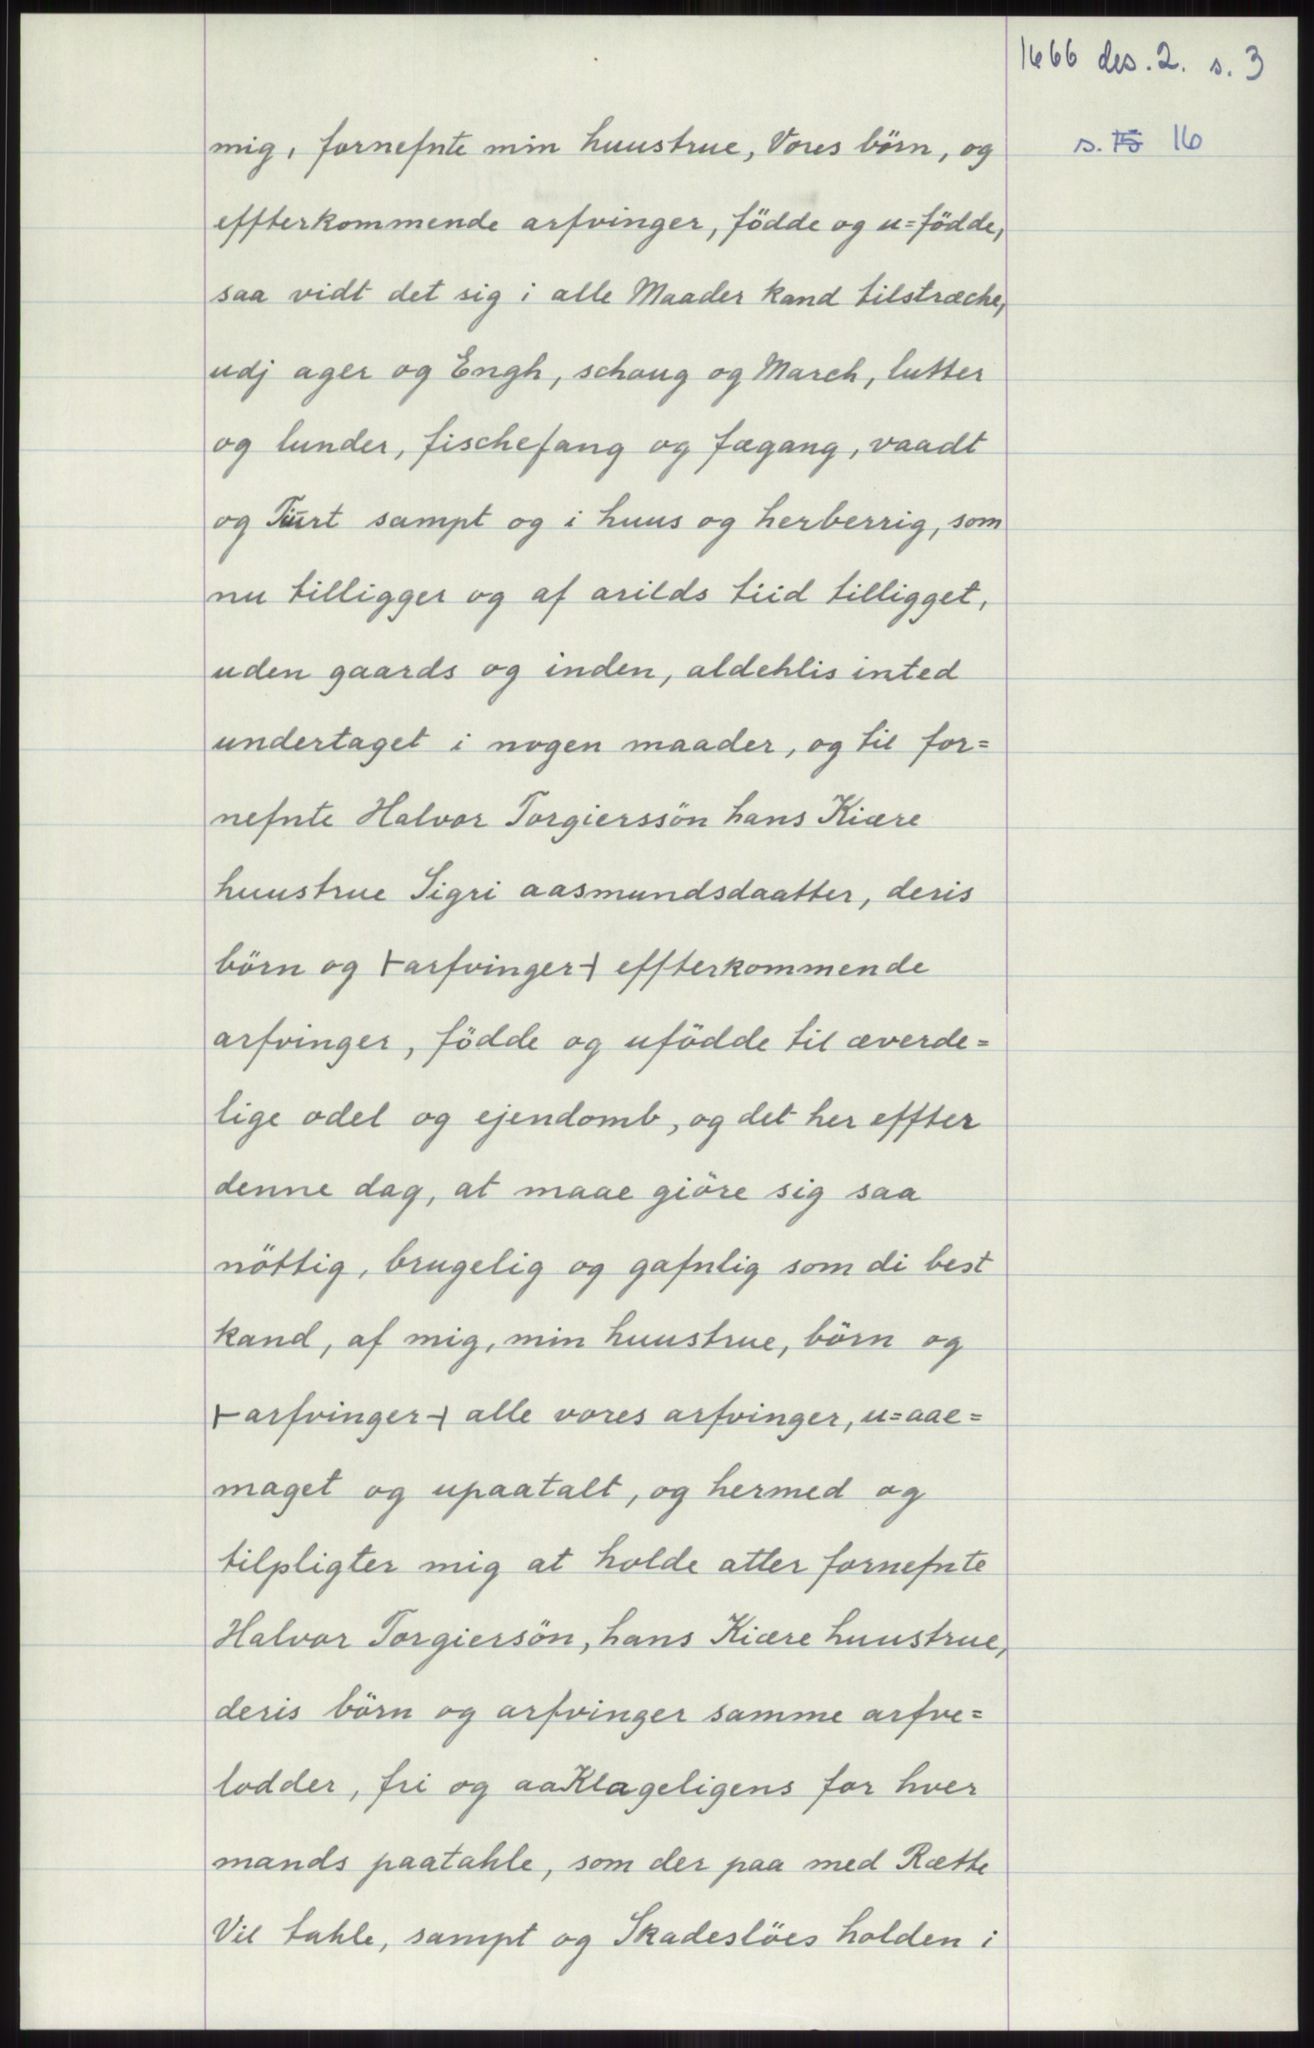 1666 des. 2. s. 3
s. 15 16
mig, fornefnte min huustrue, Vores börn, og
effterkommende arfvinger, födde og u=födde,
saa vidt det sig i alle Maader kand tilstræche,
udj ager og Engh, schoug og March, lutter
og lunder, fischefang og fægang, vaadt
og Tiurt sampt og i huus og herberrig, som
nu tilligger og af arilds tiid tilligget,
uden gaards og inden, aldehlis inted
undertaget i nogen maader, og til for=
nefnte Halvor Torgierssön hans Kiære
huustrue Sigri aasmundsdaatter, deris
börn og ⊢arfvinger⊣ effterkommende
arfvinger, födde og ufödde til æverde=
lige odel og ejendomb, og det her effter
denne dag, at maae giöre sig saa
nöttig, brugelig og gafnlig som di best
kand, af mig, min huustrue, börn og
⊢arfvinger⊣ alle vores arfvinger, u=aae=
maget og upaatalt, og hermed og
tilpligter mig at holde atter fornefnte
Halvor Torgiersön, hans Kiære huustrue,
deris börn og arfvinger samme arfve=
lodder, fri og aaKlageligens for hver
mands paatahle, som der paa med Rætte
Vil tahle, sampt og Skadeslöes holden i